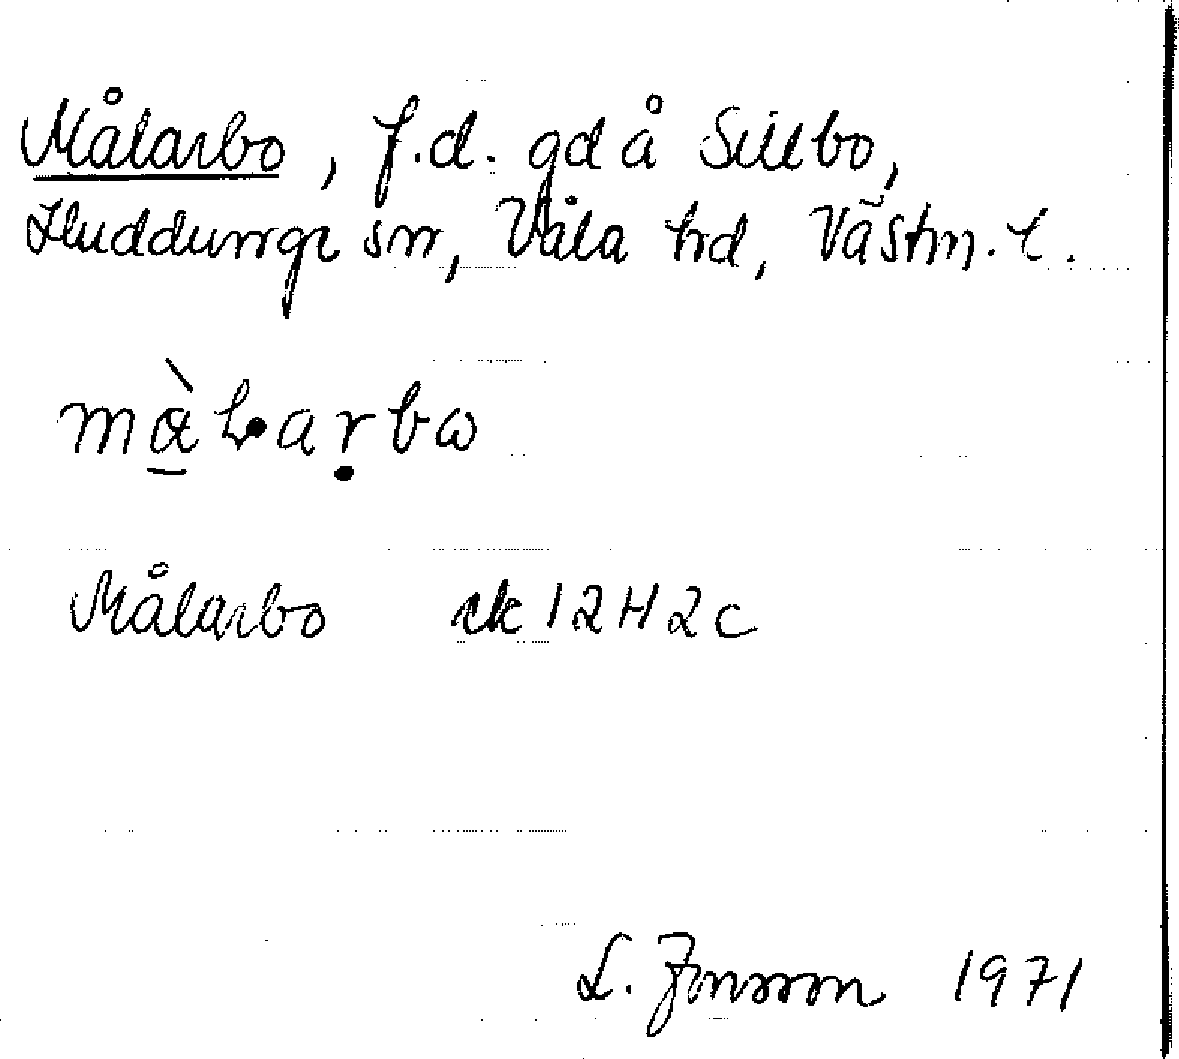 Målarbo, f.d. gd å Sillbo,
Huddunge sn, Våla hd, Västm. l.
màlarbω
Målarbo ek 12H2c
L. Jonsson 1971